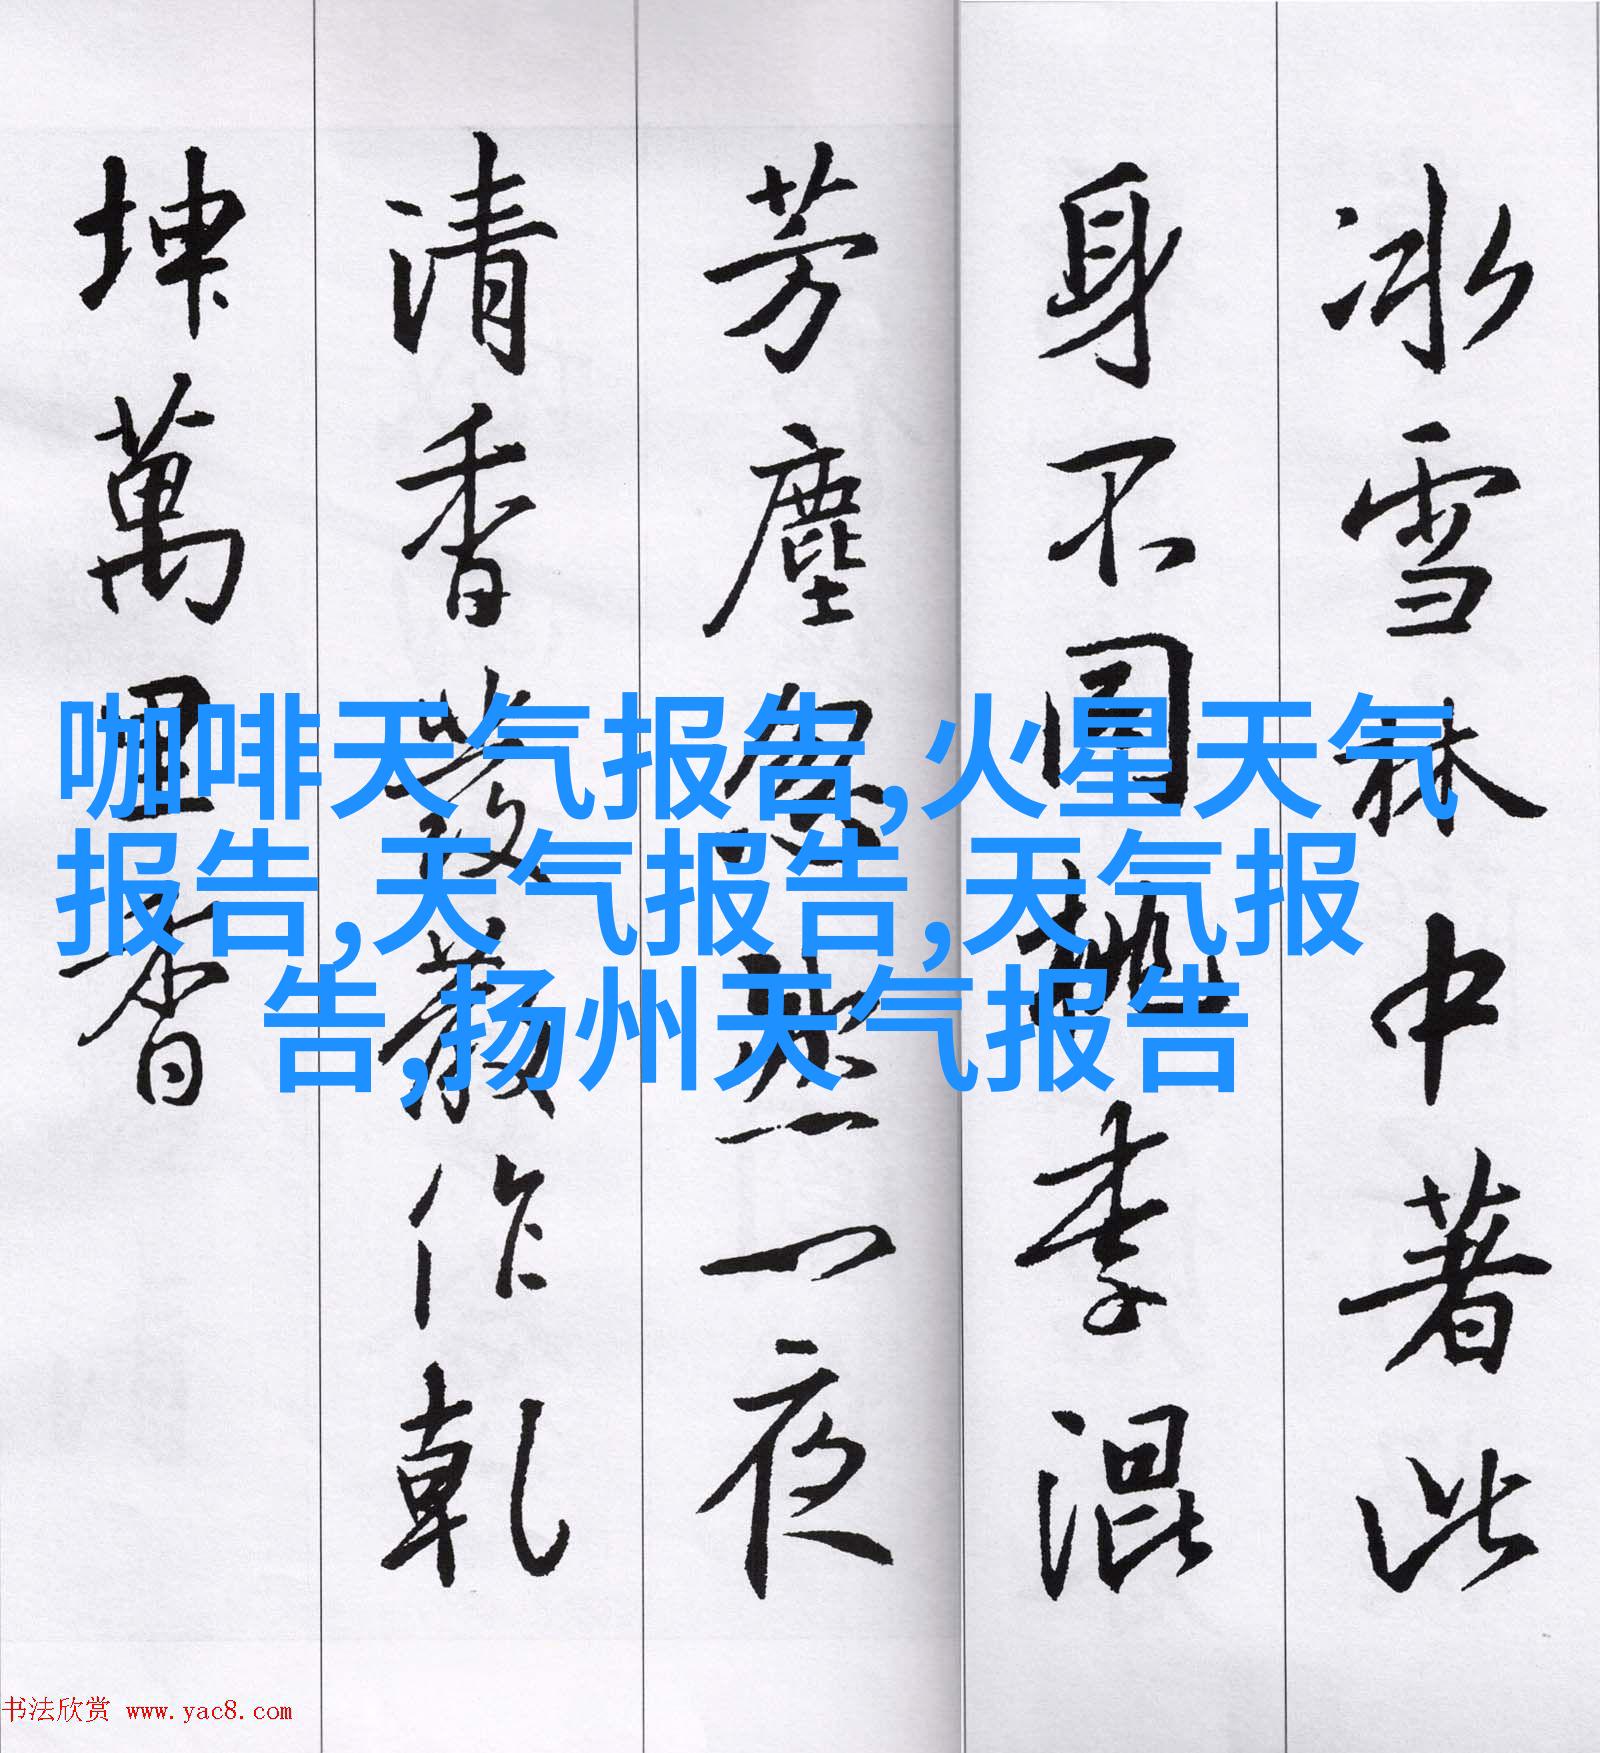 冰雪林中著此
身不同桃李混
芳塵忽然一夜
清香發散作乾
坤萬里春
咖啡天气报告,火星天气
报告,天气报告,天气报
告,扬州天气报告
书法欣赏 www.yac8.com